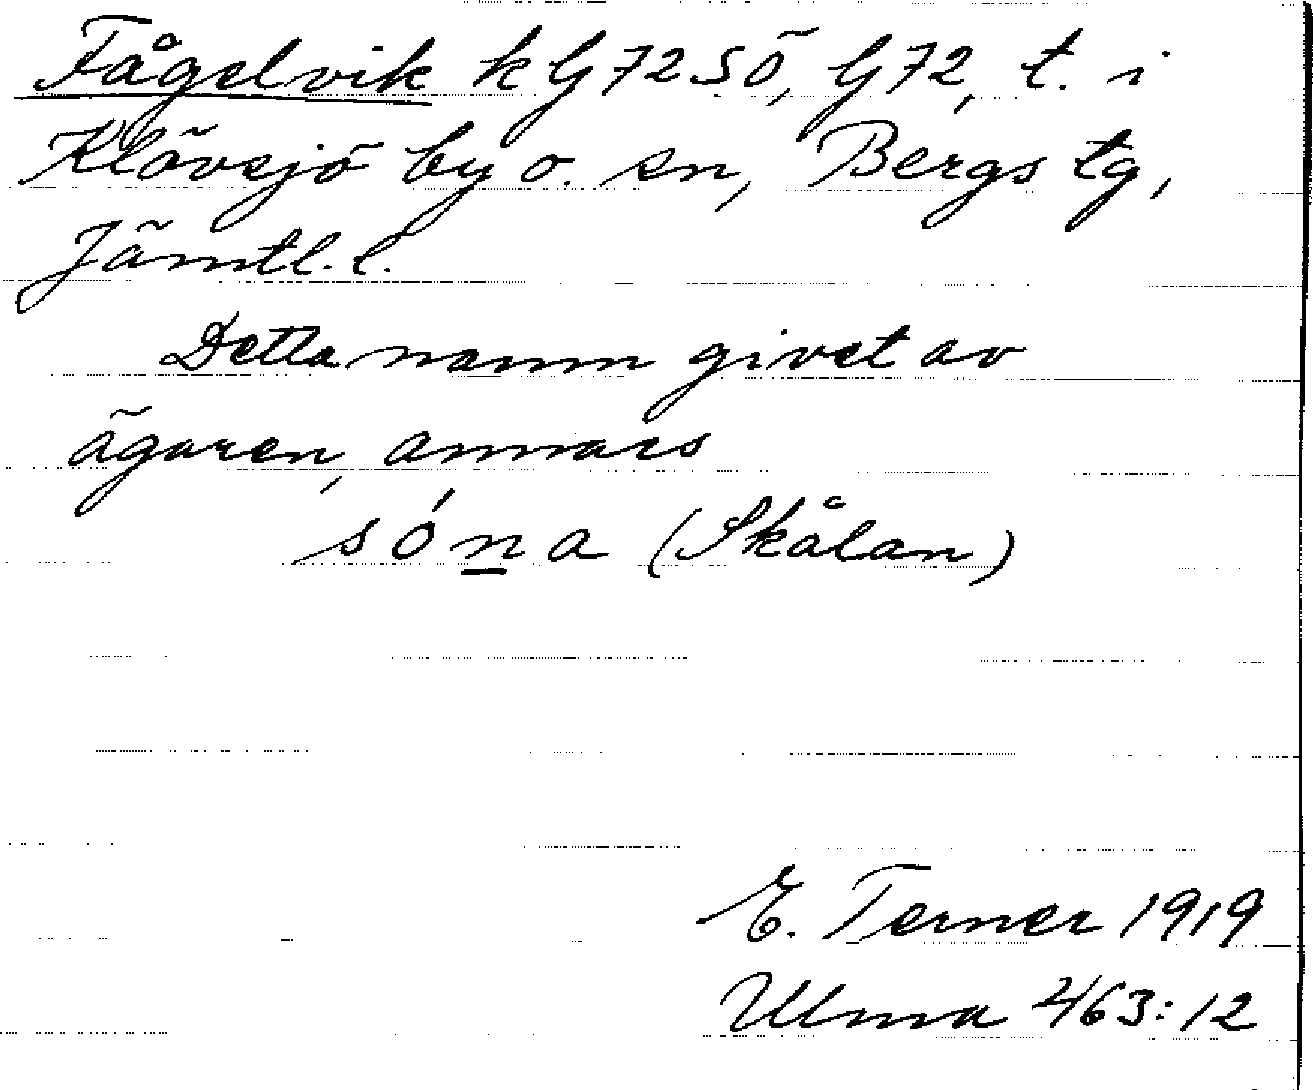 Fågelvik k G72SÖ, G72, t. i
Klövsjö by o. sn, Bergs tg,
Jämtl. l.
Detta namn givet av
ägaren, annars
sóna (Skålan)
E. Terner 1919
Ulma 463:12